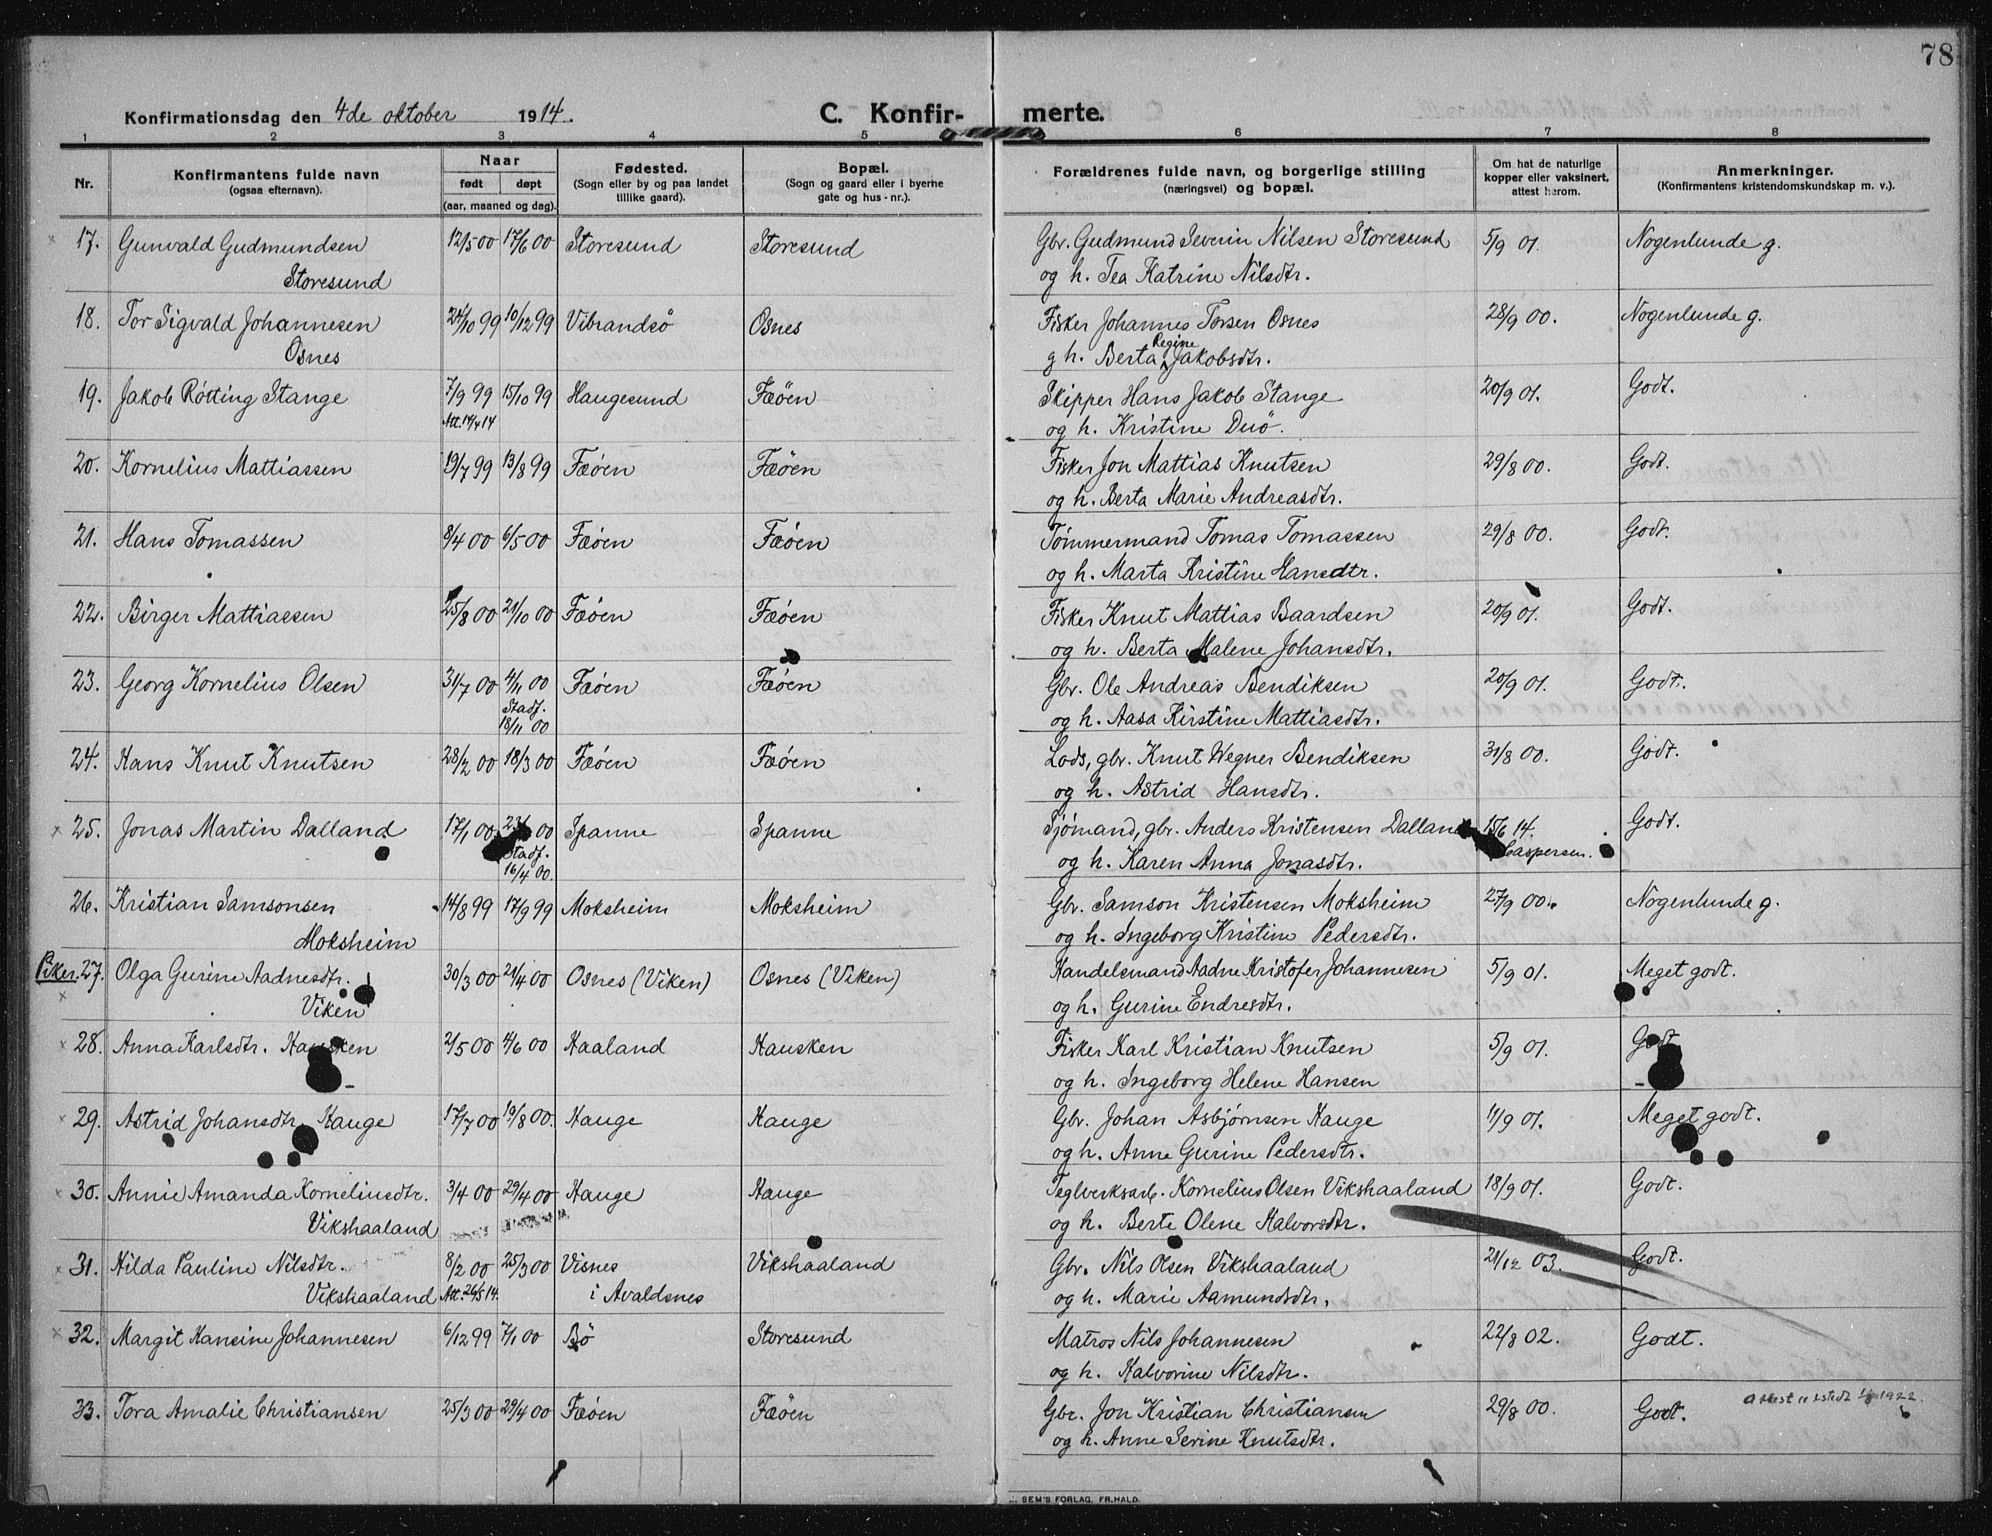 78
Konfirmationsdag den 4de oktober 1914. C. Konfir- merte.
1 2 3 4 5 6 7 8
Nr. Konfirmantens fulde navn (ogsaa efternavn). Naar født døpt (aar, maaned og dag). Fødested. (Sogn eller by og paa landet tillike gaard). Bopæl. (Sogn og gaard eller i byerne gate og hus-nr.). Forældrenes fulde navn, og borgerlige stilling (næringsvei) og bopæl. Om hat de naturlige kopper eller vaksinert, attest herom. Anmerkninger. (Konfirmantens kristendomskundskap m. v.).
17. Gunvald Gudmundsen 12/5 00 17/6 00 Storesund Storesund Gbr. Gudmund Severin Nilsen Storesund 5/9 01. Nogenlunde g.
Storesund og h. Tea Katrine Nilsdtr.
18. Tor Sigvald Johannesen 24/10 99 10/12 99 Vibrandsö Osnes Fisker Johannes Torsen Osnes 28/9 00. Nogenlunde g.
Osnes g h. Berta Regine Jakobsdtr.
19. Jakob Røtting Stange 7/9 99 15/10 99 Haugesund Fæøen Skipper Hans Jakob Stange 20/9 01. Godt.
Att. 14/4 14 og h. Kristine Duö.
20. Kornelius Mattiassen 19/7 99 13/8 99 Fæøen Fæøen Fisker Jon Mattias Knutsen 29/8 00. Godt.
og h. Berta Marie Andreasdtr.
21. Hans Tomassen 8/4 00 6/5 00 Fæøen Fæøen Tømmermand Tomas Tomassen 29/8 00. Godt.
og h. Marta Kristine Hansdtr.
22. Birger Mattiassen 25/8 00 21/10 00 Fæøen Fæøen Fisker Knut Mattias Baardsen 20/9 01. Godt.
og h. Berta Malene Johansdtr.
23. Georg Kornelius Olsen 31/7 00 4/11 00 Fæøen Fæøen Gbr. Ole Andreas Bendiksen 20/9 01. Godt.
Stadf. 18/11 00 og h. Aasa Kirstine Mattiasdtr.
24. Hans Knut Knutsen 28/2 00 18/3 00 Fæøen Fæøen Lods, gbr. Knut Wegner Bendiksen 31/8 00. Godt.
og h. Astrid Hansdtr.
× 25. Jonas Martin Dalland 17/1 00 00 Spanne Spanne Sjømand, gbr. Anders Kristensen Dalland 15/6 14. Godt.
Stadf. 16/4 00. og h. Karen Anna Jonasdtr. Caspersen.
26. Kristian Samsonsen 14/8 99 17/9 99 Moksheim Moksheim Gbr. Samson Kristensen Moksheim 27/9 00. Nogenlunde g.
Moksheim og h. Ingeborg Kristine Pedersdtr.
Piker. 27. Olga Gurine Aadnesdtr. 30/3 00 21/4 00 Osnes (Viken) Osnes (Viken) Handelsmand Aadne Kristofer Johannesen 5/9 01. Meget godt.
× Viken og h. Gurine Endresdtr.
× 28. Anna Karlsdtr. Hausken 2/5 00 4/6 00 Haaland Hausken Fisker Karl Kristian Knutsen 5/9 01. Godt.
og h. Ingeborg Helene Hansen
× 29. Astrid Johansdtr. Hauge 17/7 00 19/8 00. Hauge Hauge Gbr. Johan Asbjørnsen Hauge 11/9 01. Meget godt.
og h. Anne Gurine Pedersdtr.
× 30. Annie Amanda Korneliusdtr. 3/4 00 29/4 00 Hauge Hauge Teglverksarb. Kornelius Olsen Vikshaaland 18/9 01. Godt.
Vikshaaland og h. Berte Olene Halvorsdtr.
× 31. Hilda Pauline Nilsdtr. 8/2 00 25/3 00 Visnes Vikshaaland Gbr. Nils Olsen Vikshaaland 21/12 03. Godt.
Vikshaaland Att. 26/5 14. i Avaldsnes og h. Marie Aamundsdtr.
× 32. Margit Hansine Johannesen 6/12 99 7/1 00 Bö Storesund Matros Nils Johannesen 22/8 02. Godt.
og h. Halvorine Nilsdtr.
33. Tora Amalie Christiansen 25/3 00 29/4 00 Fæøen Fæøen Gbr. Jon Kristian Christiansen 29/8 00. Godt. 1922.
og h. Anne Serine Knutsdtr.
SEM'S FORLAG, FR.HALD.